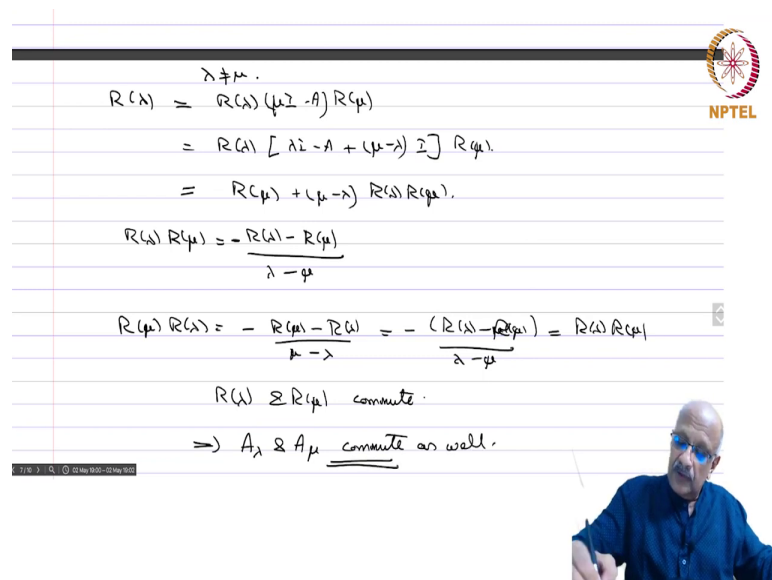 λ ≠ μ.
R(λ) = R(λ) (μI - A) R(μ)
= R(λ) [ λI - A + (μ-λ) I ] R(μ).
= R(μ) + (μ-λ) R(λ) R(μ).
R(λ) R(μ) = - R(λ) - R(μ) / λ - μ
R(μ) R(λ) = - R(μ) - R(λ) / μ - λ = - (R(λ) - R(μ)) / λ - μ = R(λ) R(μ)
R(λ) & R(μ) commute.
⇒ A_λ & A_μ commute as well.
NPTEL
7 / 10
02 May 19:00 – 02 May 19:02